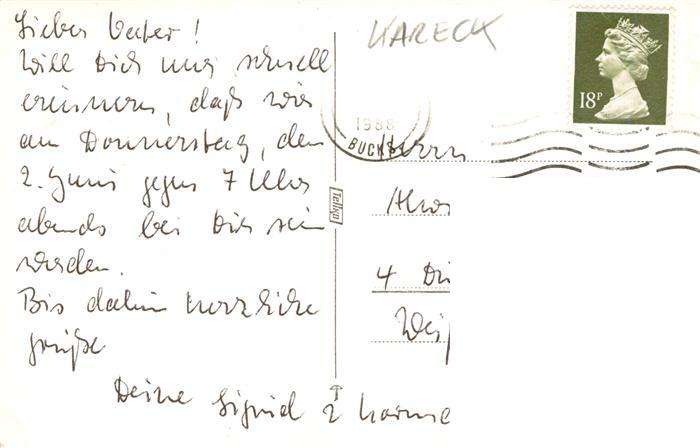 Lieber Vater!
Will Dich nur schnell
erinnern, daß wir
am Donnerstag, den
2. Juni gegen 7 Uhr
abends bei Dir sein
werden.
Bis dahin herzliche
Grüße
Deine Sigrid
KARECK
18P
1988
BUCK
Herrn
4